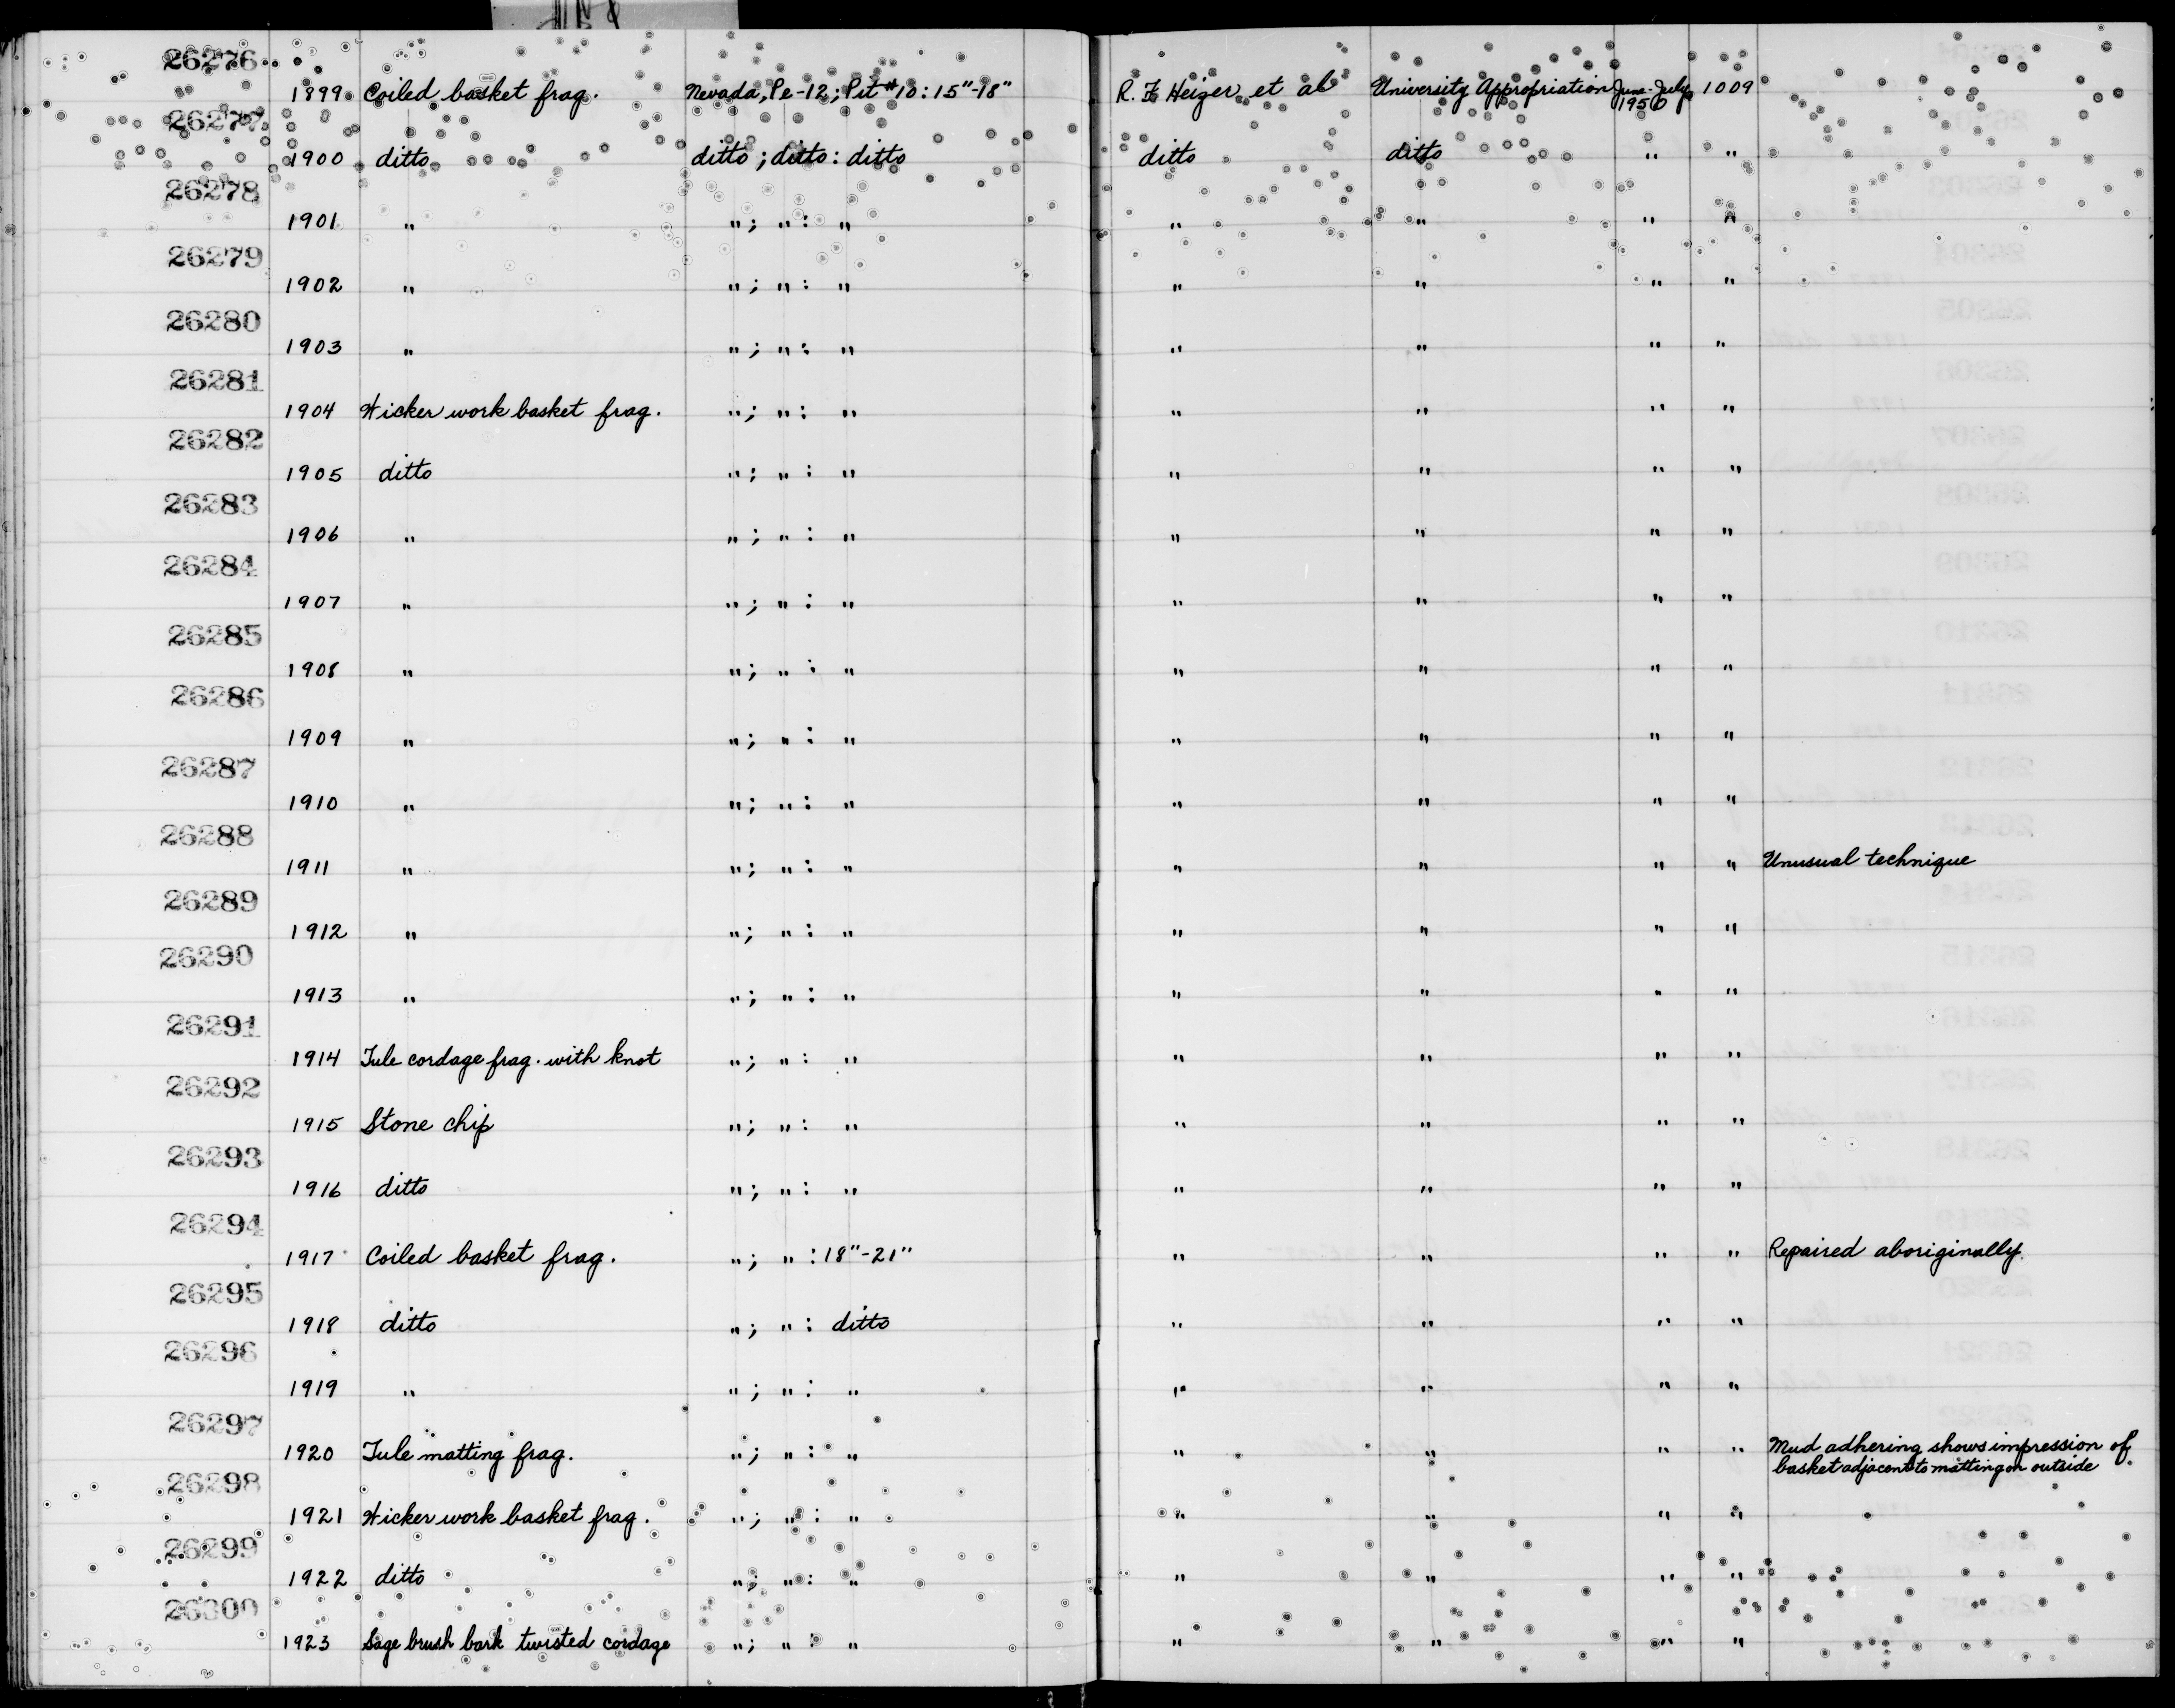 26276
1899 Coiled basket frag. Nevada, Pe-12; Pit #10: 15"-18" R. F. Heizer et al University Appropriation June-July 1950 1009
26277
1900 ditto ditto ; ditto : ditto ditto ditto " "
26278
1901 " " ; " : " " " " "
26279
1902 " " ; " : " " " " "
26280
1903 " " ; " : " " " " "
26281
1904 Wicker work basket frag. " ; " : " " " " "
26282
1905 ditto " ; " : " " " " "
26283
1906 " " ; " : " " " " "
26284
1907 " " ; " : " " " " "
26285
1908 " " ; " : " " " " "
26286
1909 " " ; " : " " " " "
26287
1910 " " ; " : " " " " "
26288
1911 " " ; " : " " " " " Unusual technique
26289
1912 " " ; " : " " " " "
26290
1913 " " ; " : " " " " "
26291
1914 Tule cordage frag. with knot " ; " : " " " " "
26292
1915 Stone chip " ; " : " " " " "
26293
1916 ditto " ; " : " " " " "
26294
1917 Coiled basket frag. " ; " : 18"-21" " " " " Repaired aboriginally.
26295
1918 ditto " ; " : ditto " " " "
26296
1919 " " ; " : " " " " "
26297
1920 Tule matting frag. " ; " : " " " " " Mud adhering shows impression of
basket adjacent to matting on outside.
26298
1921 Wicker work basket frag. " ; " : " " " " "
26299
1922 ditto " ; " : " " " " "
26300
1923 Sage brush bark twisted cordage " ; " : " " " " "